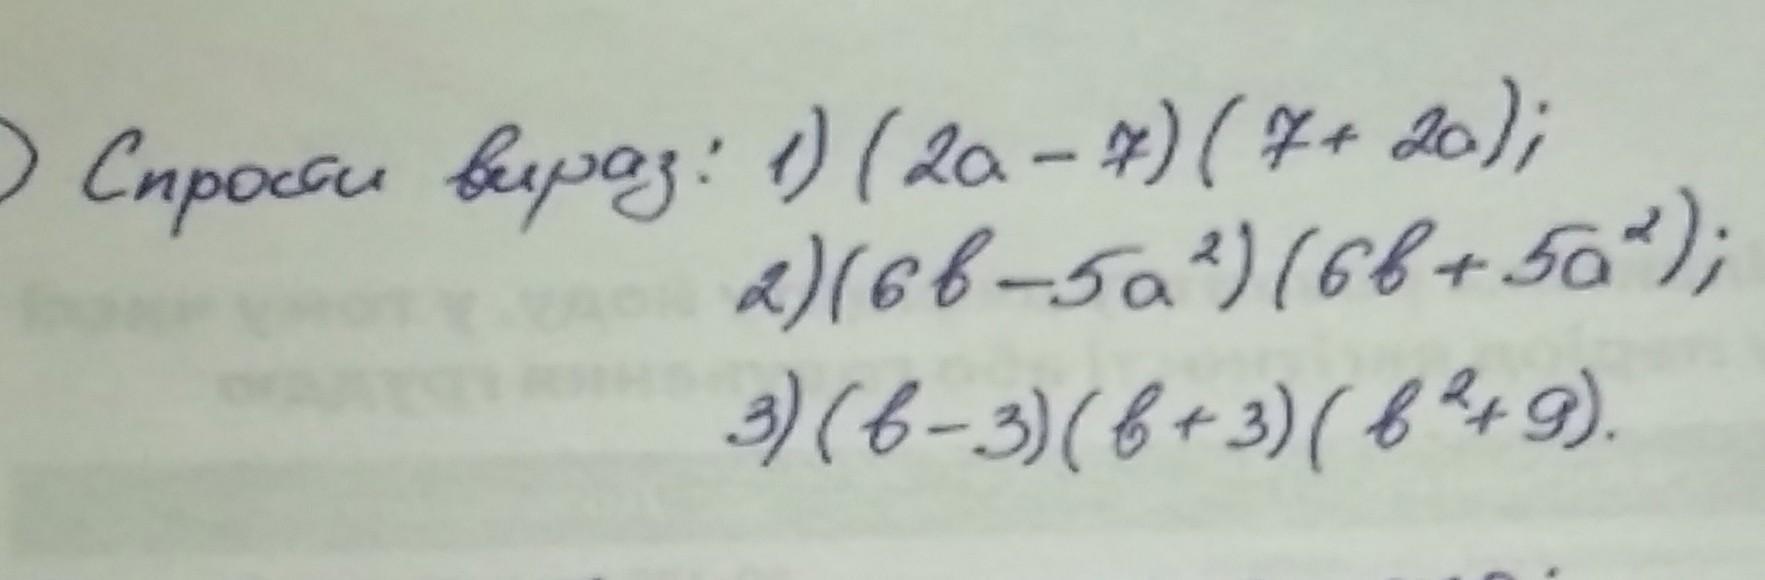 ) Спрости вираз: 1) (2a - 7)(7 + 2a);
2) (6b - 5a²)(6b + 5a²);
3) (b - 3)(b + 3)(b² + 9).